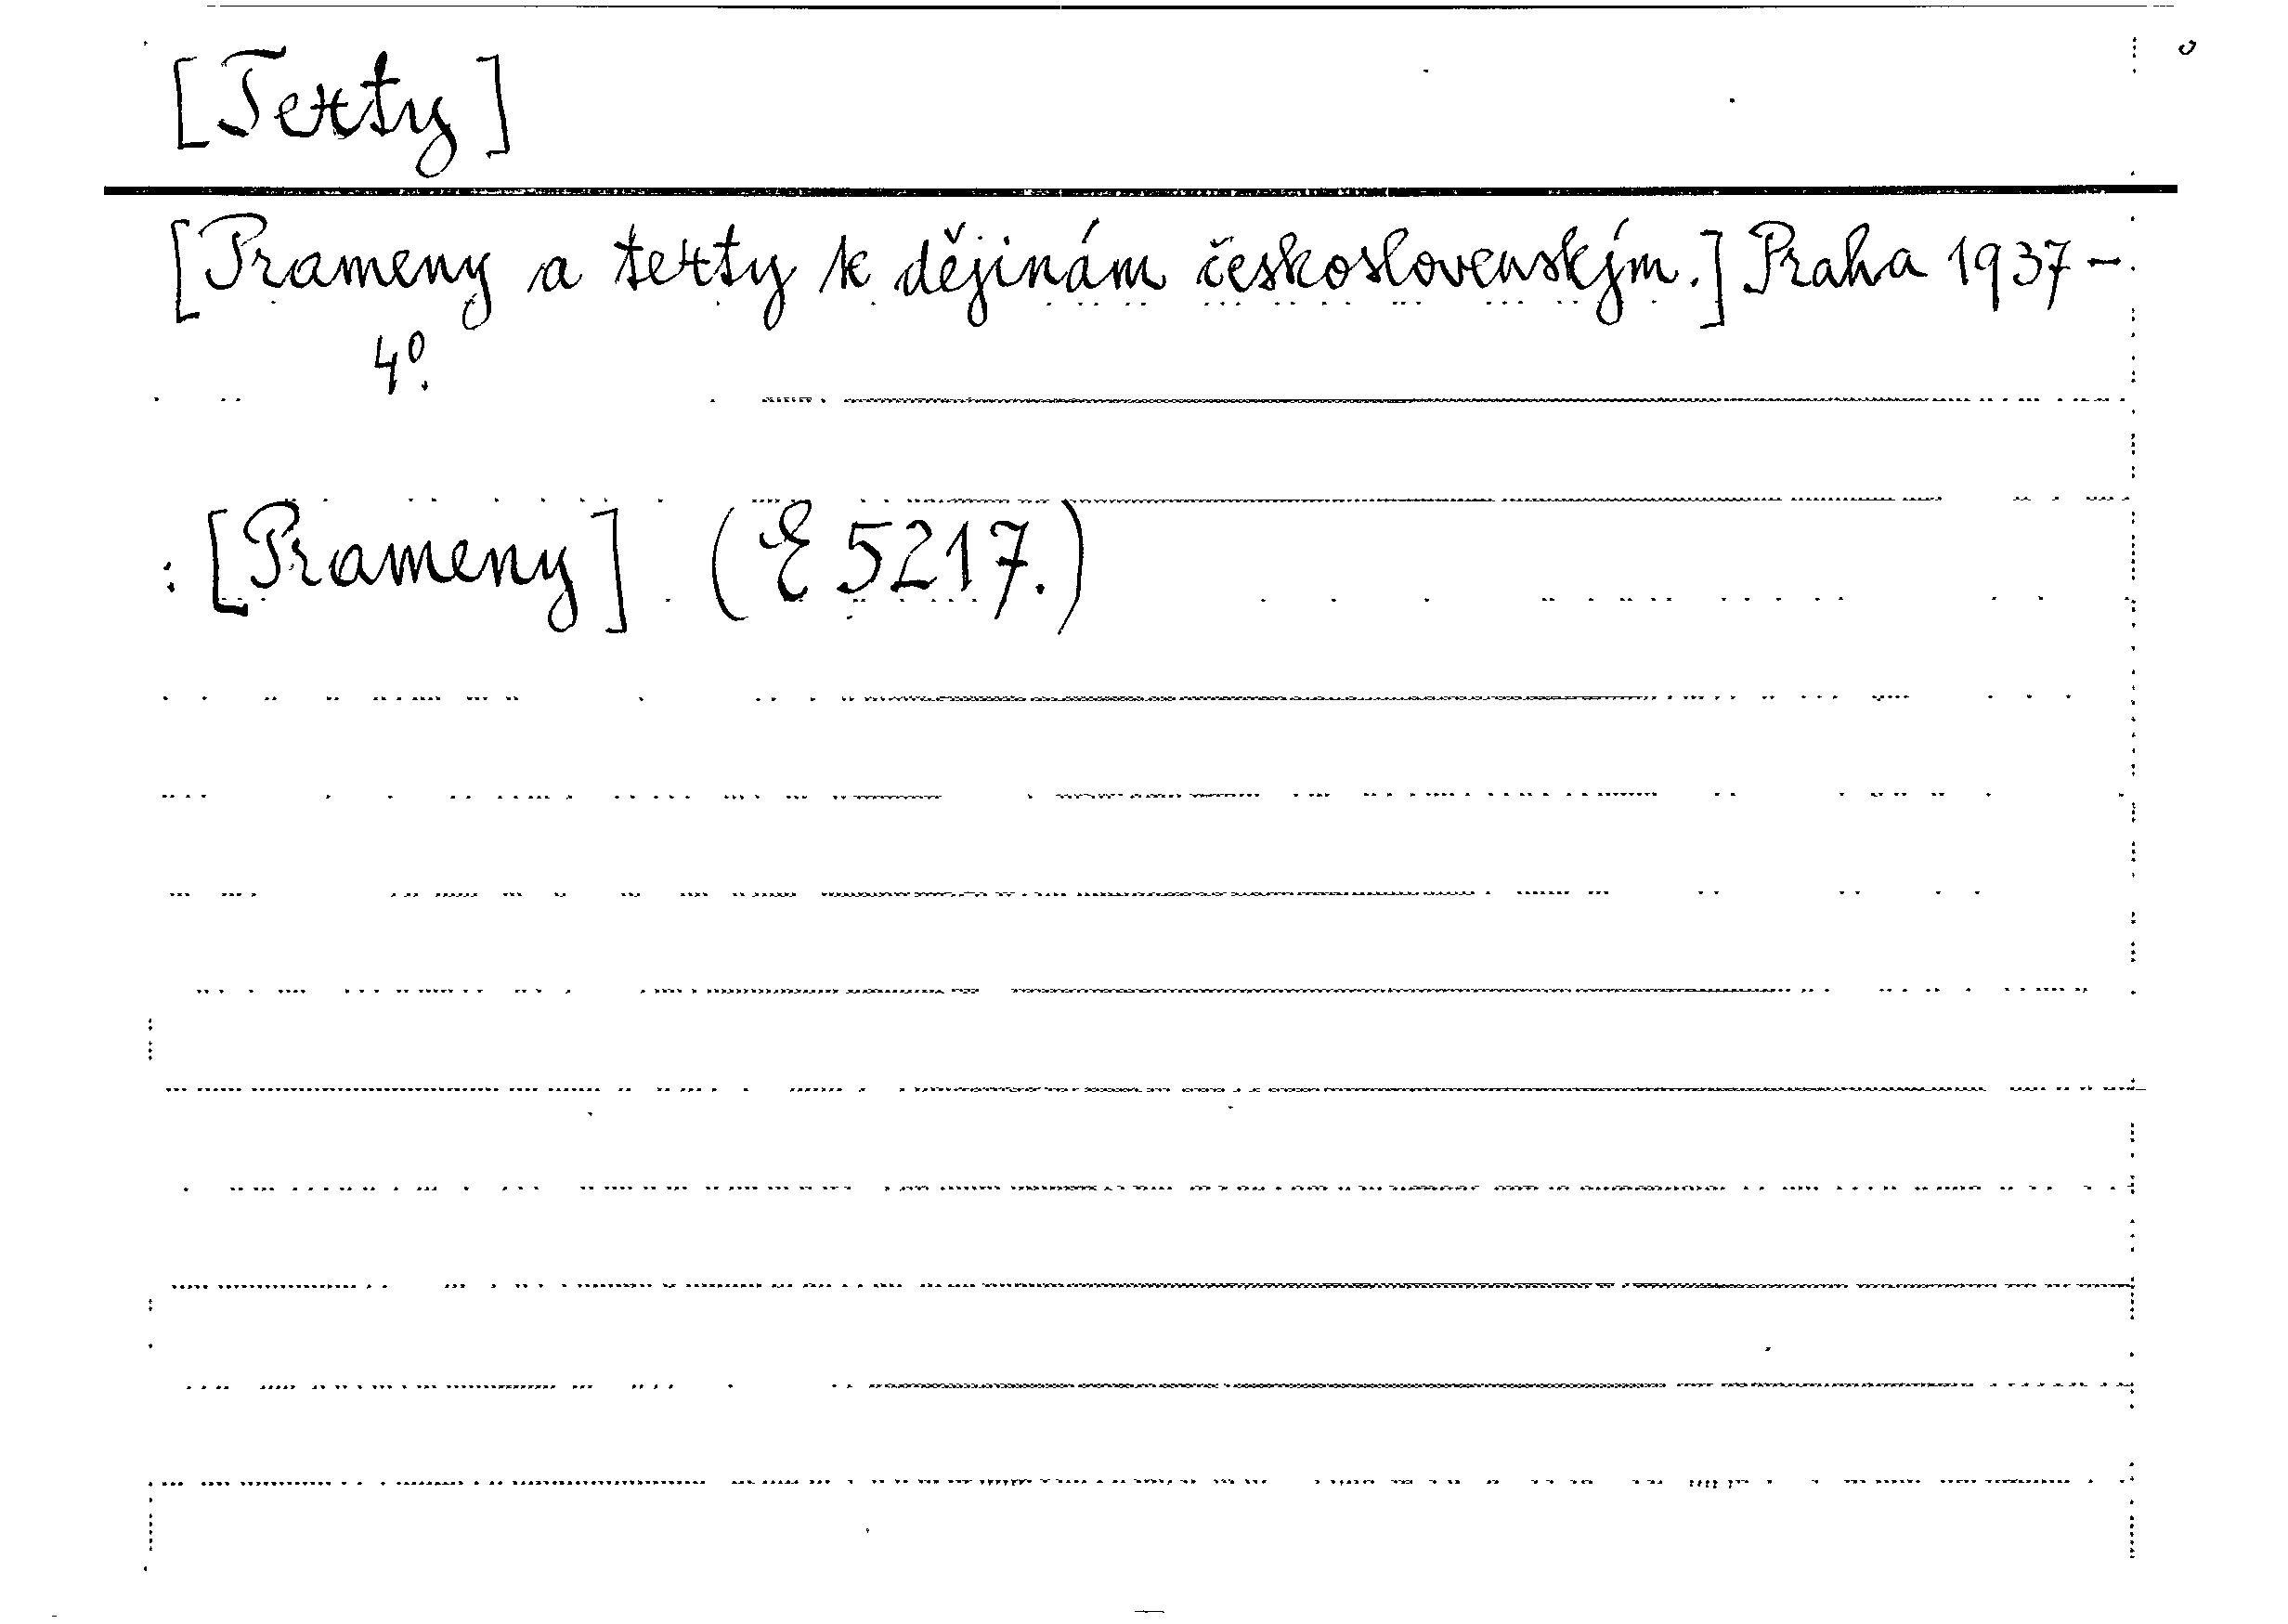 [Texty]
[Prameny a texty k dějinám československým.] Praha 1937-.
4⁰.
: [Prameny] (E 5217.)